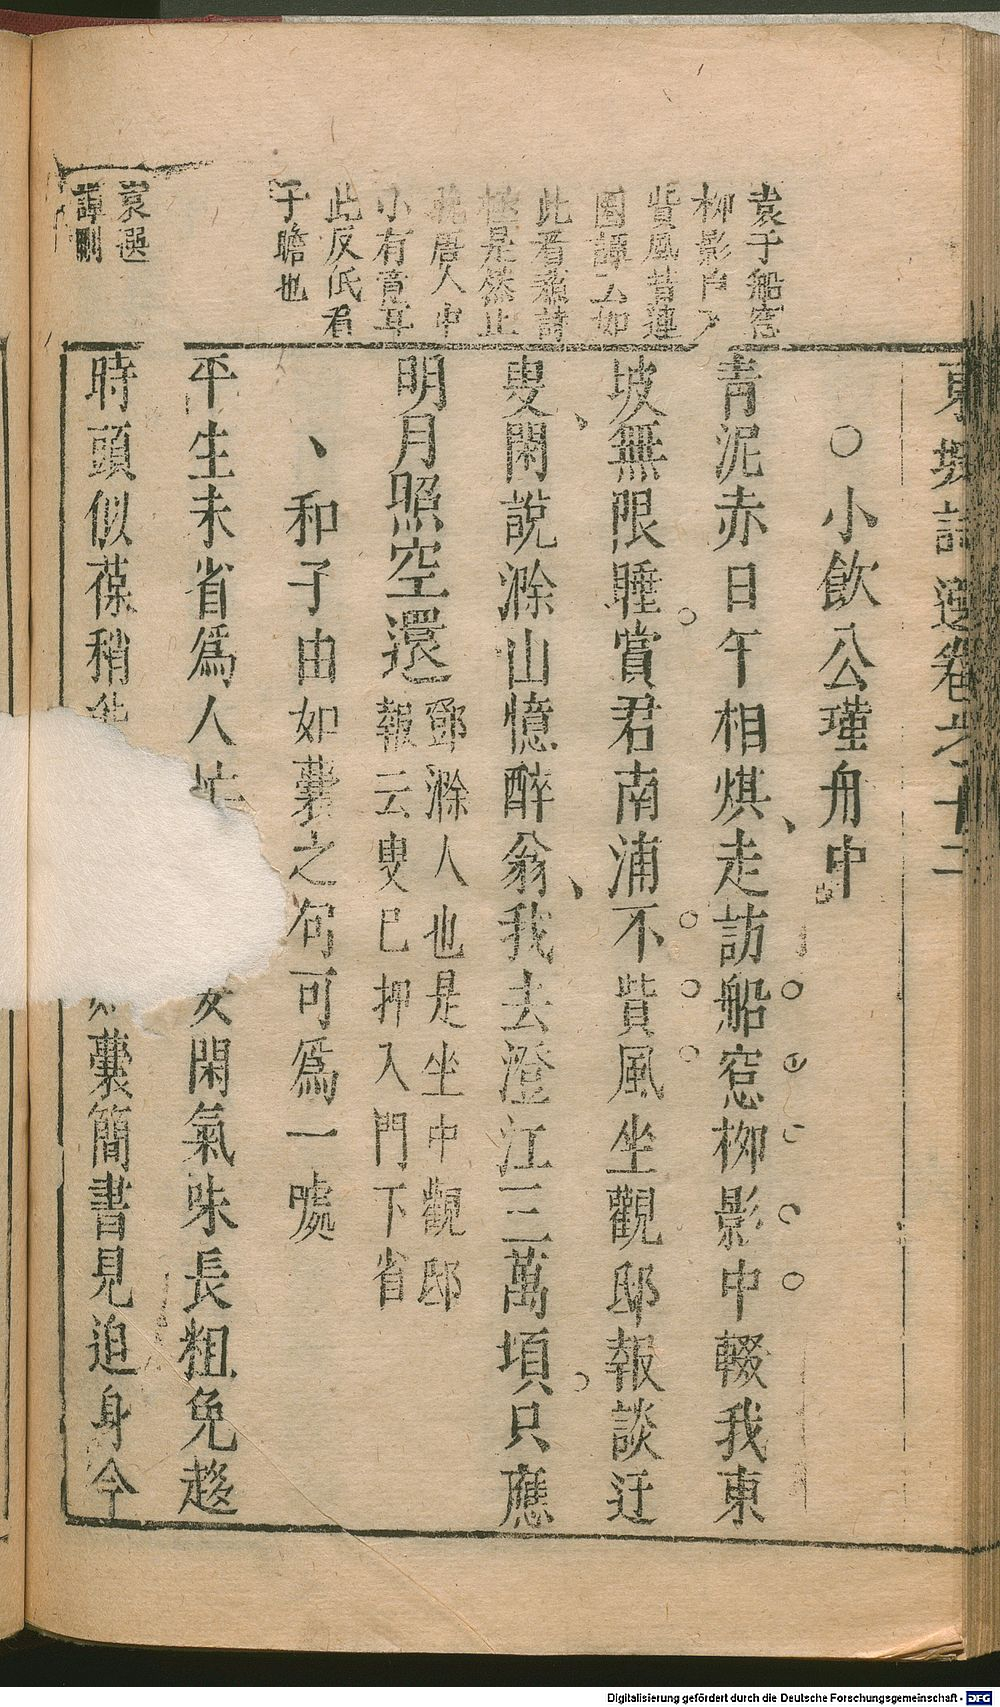 東坡詩選卷之十二
○小飲公瑾舟中
青泥赤日午相煤走訪船窓柳影中輟我東
坡無限睡賞君南浦不貲風坐觀邸報談迂
叟閑說滁山憶醉翁我去澄江三萬頃只應
明月照空還
鄧滁人也是坐中觀邸
報云叟已押入門下省
和子由如囊之句可爲一處
平生未省爲人忙
閑氣味長粗免趂
時頭似葆稍
囊簡書見迫身今
袁于船窓
柳影
貲風昔
圈譚云如
此看
極是然止
唐人中
小有意耳
此反低看
子瞻也
袁選
譚刪
Digitalisierung gefördert durch die Deutsche Forschungsgemeinschaft - DFG